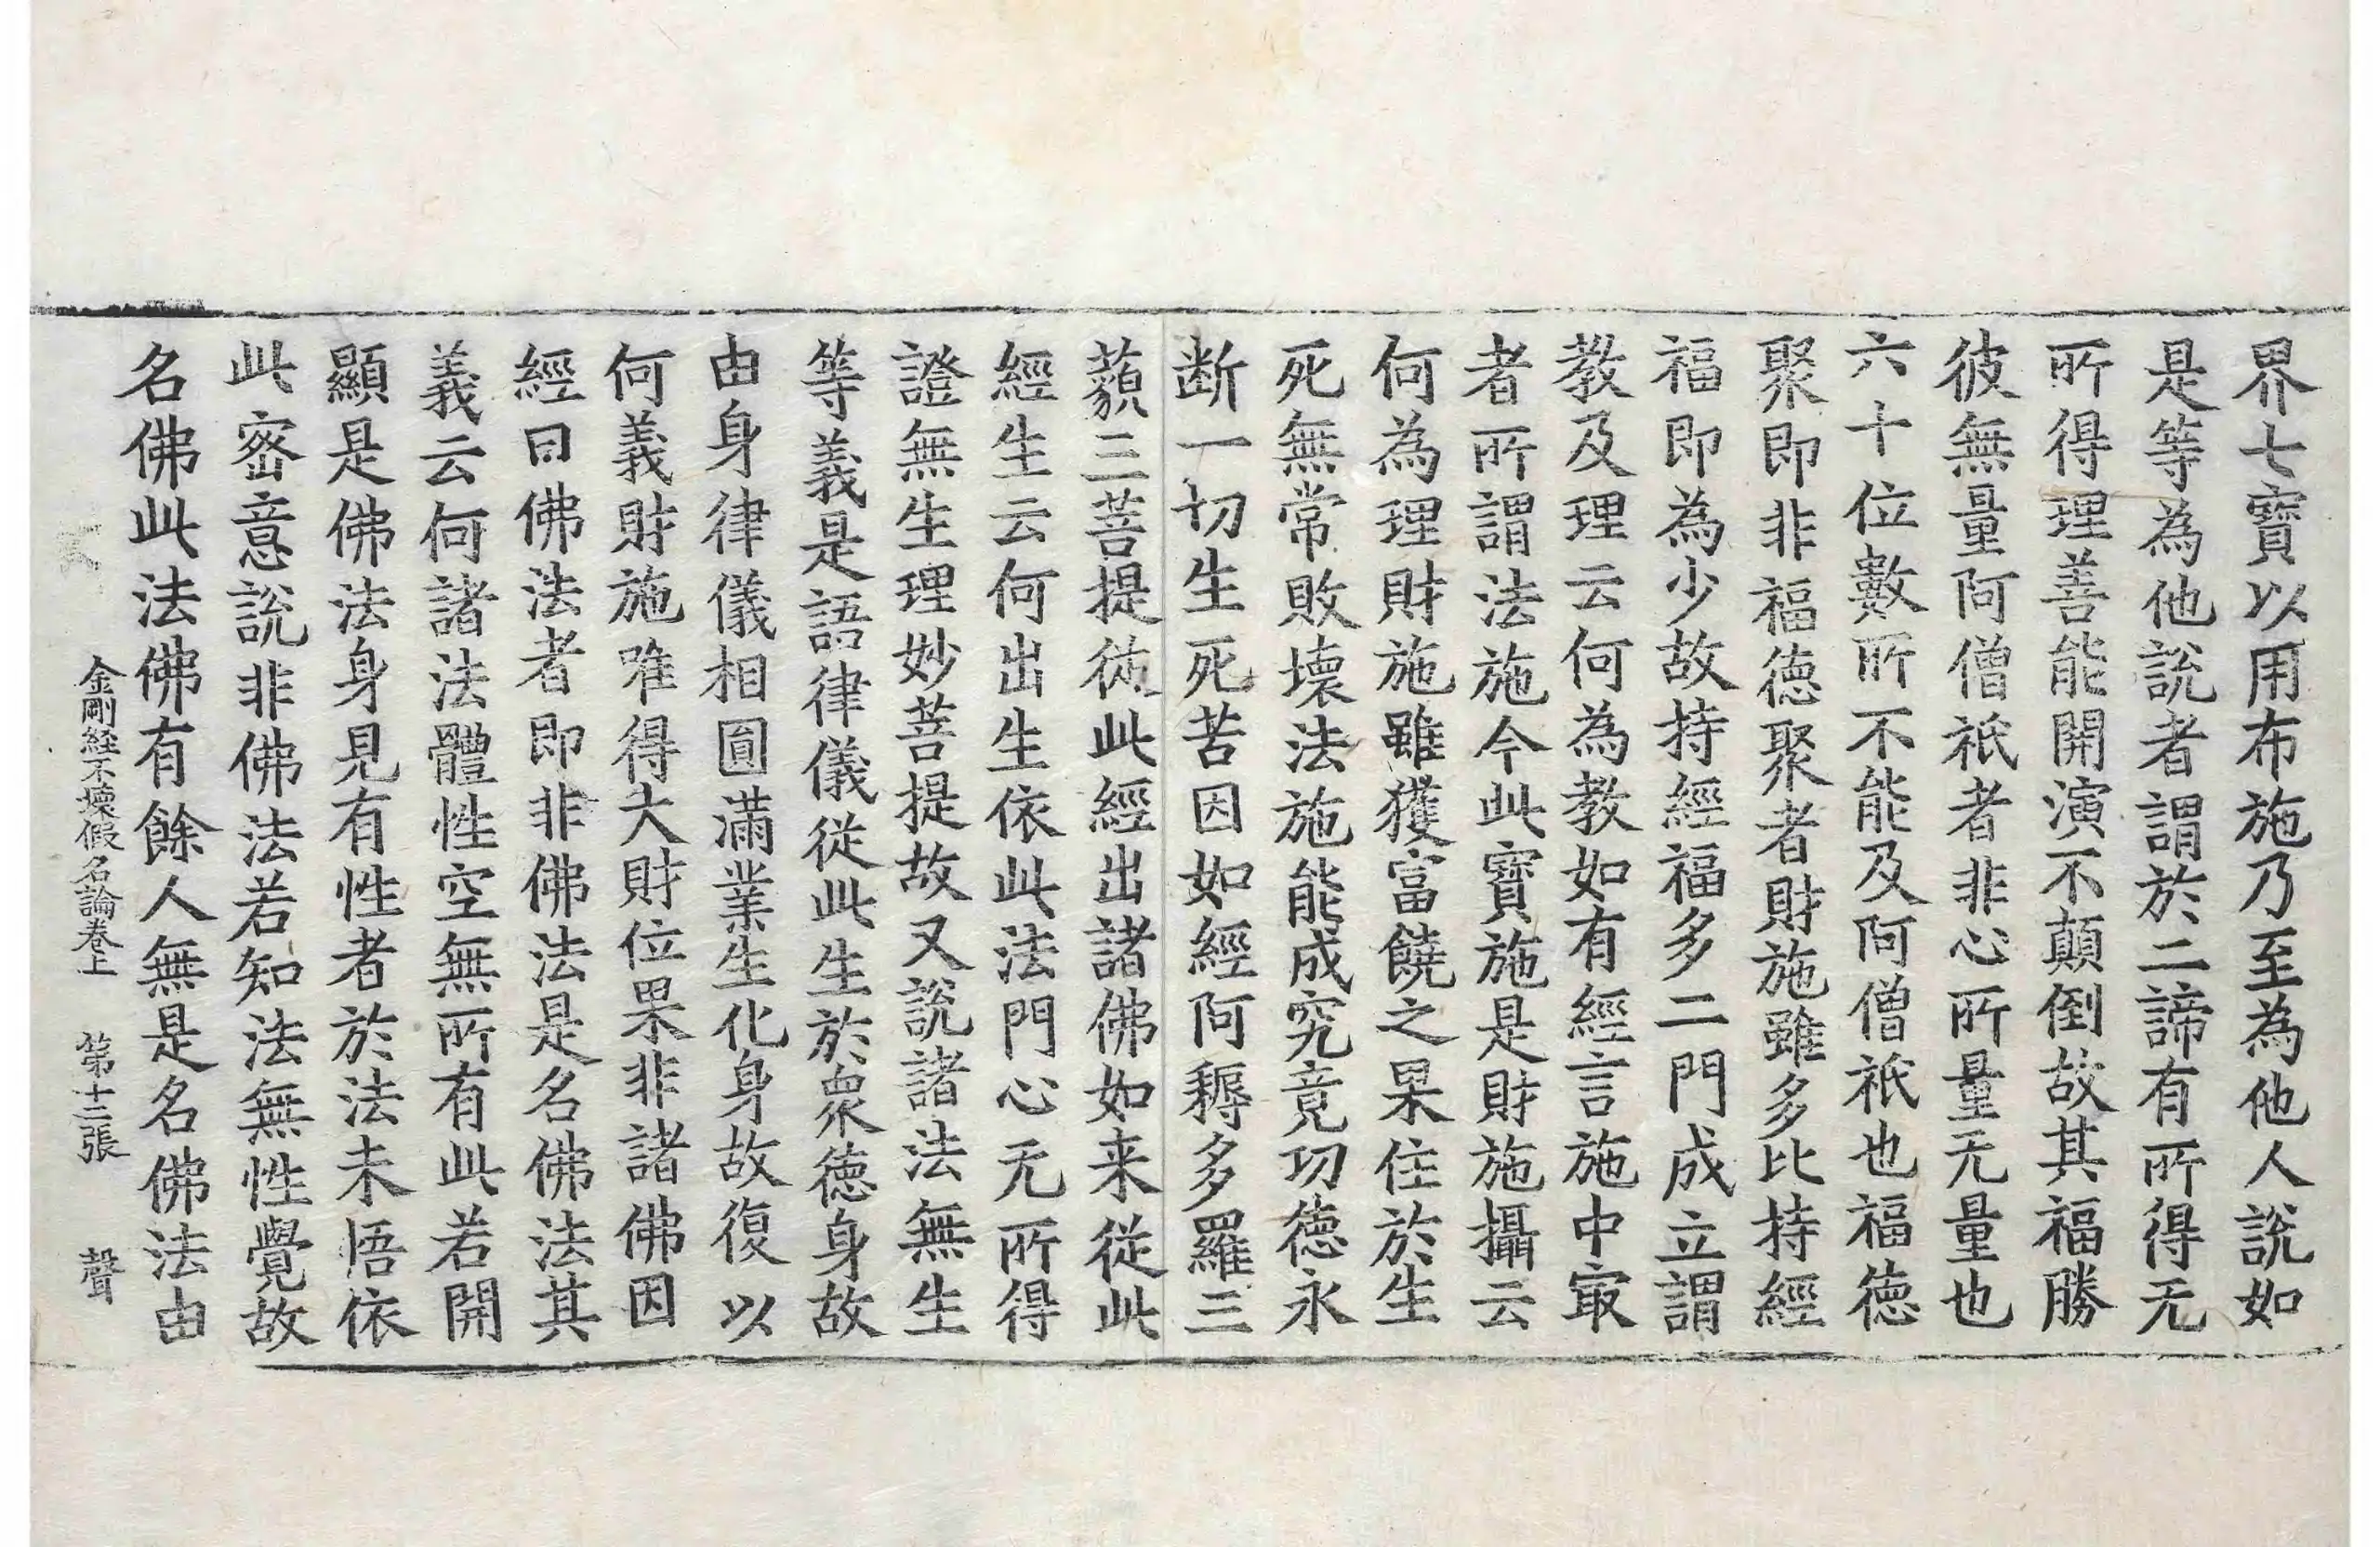 界七寶以用布施乃至為他人說如
是等為他說者謂於二諦有所得无
所得理善能開演不顛倒故其福勝
彼無量阿僧祇者非心所量无量也
六十位數所不能及阿僧祇也福德
聚即非福德聚者財施雖多比持經
福即為少故持經福多二門成立謂
教及理云何為教如有經言施中㝡
者所謂法施今此寶施是財施攝云
何為理財施雖獲富饒之果住於生
死無常敗壞法施能成究竟功德永
断一切生死苦因如經阿耨多羅三
藐三菩提從此經出諸佛如来從此
經生云何出生依此法門心无所得
證無生理妙菩提故又說諸法無生
等義是語律儀從此生於衆德身故
由身律儀相圓滿業生化身故復以
何義財施唯得大財位果非諸佛因
經曰佛法者即非佛法是名佛法其
義云何諸法體性空無所有此若開
顯是佛法身見有性者於法未悟依
此密意說非佛法若知法無性覺故
名佛此法佛有餘人無是名佛法由
金剛経不壞假名論卷上 第十二張 聲